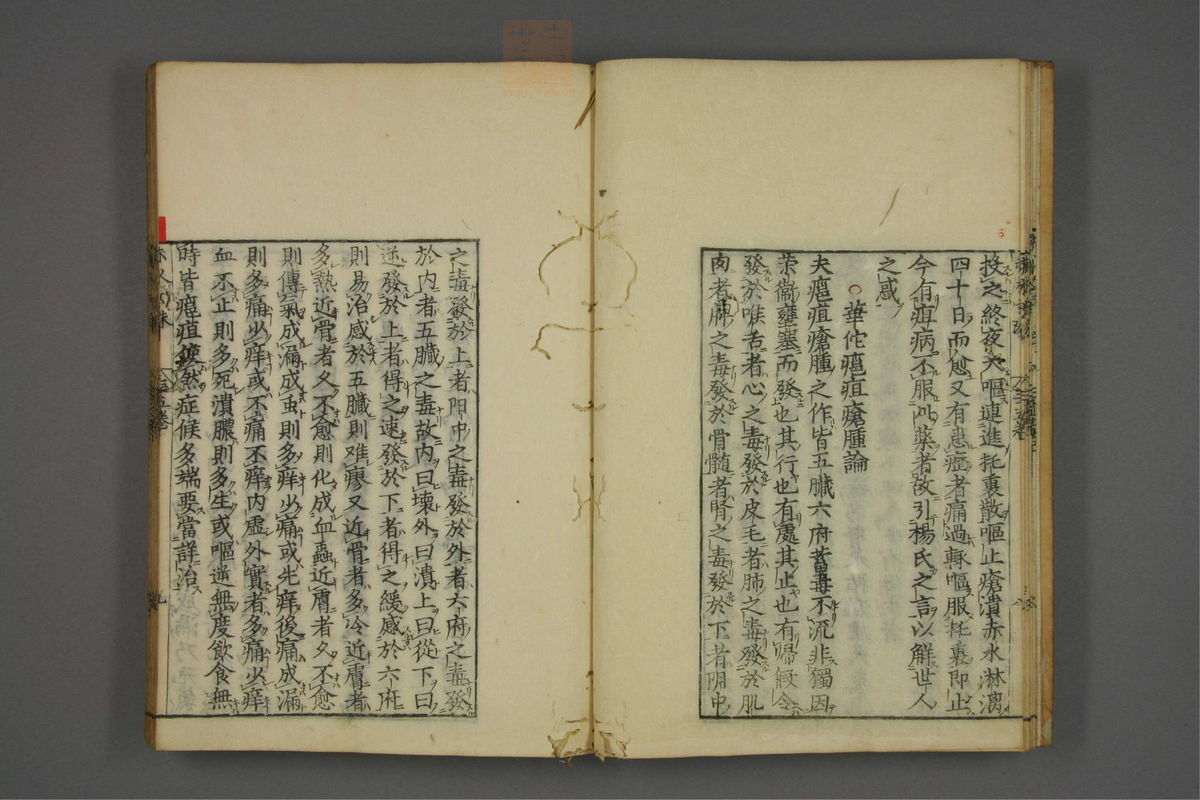 投之終夜大嘔連進托裏散嘔止瘡潰赤水淋漓
四十日而愈又有患瘡者痛過輙嘔服托裏即止
今有疽病不服此藥者故引楊氏之言以解世人
之惑
○華佗瘡疽瘡腫論
夫瘡疽瘡腫之作皆五臟六府蓄毒不流非獨因
榮衞壅塞而發也其行也有處其止也有歸假令
發於喉舌者心之毒發於皮毛者肺之毒發於肌
肉者脾之毒發於骨髓者腎之毒發於下者阴中
之毒發於上者阳中之毒發於外者六府之毒發
於内者五臟之毒故内曰壊外曰潰上曰從下曰
逆發於上者得之速發於下者得之緩感於六府
則易治感於五臟則难瘳又近骨者多冷近膚者
多熱近骨者久不愈則化成血蟲近膚者久不愈
則傳氣成漏成虫則多痒少痛或先痒後痛成漏
則多痛少痒或不痛不痒内虚外實者多痛少痒
血不止則多死潰膿則多生或嘔逆無度飲食無
時皆瘡疽使然症候多端要當詳治
九